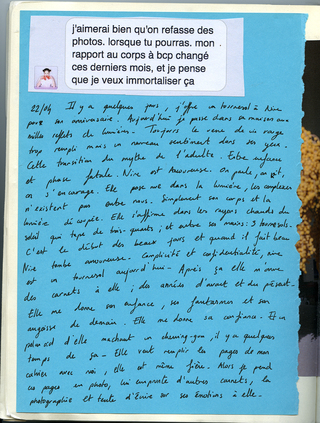 j'aimerai bien qu'on refasse des
photos. lorsque tu pourras. mon
rapport au corps à bcp changé
ces derniers mois, et je pense
que je veux immortaliser ça
22/04 Il y a quelques jours, j'offre un tournesol à Nine
pour son anniversaire. Aujourd'hui je passe dans sa maison aux
mille reflets de lumière. Toujours le verre de vin rouge
trop rempli mais un nouveau sentiment dans ses yeux.
Cette transition du mythe de l'adulte. Entre enfance
et phase fatale. Nine est amoureuse. On parle, on rit,
on s'encourage. Elle pose nue dans la lumière, les complexes
n'existent pas entre nous. Simplement son corps et la
lumière découpée. Elle s'affirme dans les rayons chauds du
soleil qui tape de trois-quarts; et entre ses mains: 3 tournesols.
C'est le début des beaux jours et quand il fait beau
Nine tombe amoureuse. Complicité et confidentialité, Nine
est un tournesol aujourd'hui. Après ça elle m'ouvre
des carnets à elle; des années d'avant et du présent.
Elle me donne son enfance, ses fantasmes et son
angoisse de demain. Elle me donne sa confiance. Et un
polaroid d'elle machant un chewing-gum, il y a quelques
temps de ça. Elle veut remplir les pages de mon
cahier avec moi, elle est même fière. Alors je prend
ces pages en photo, lui emprunte d'autres carnets, la
photographie et tente d'écrire sur ses émotions à elle.